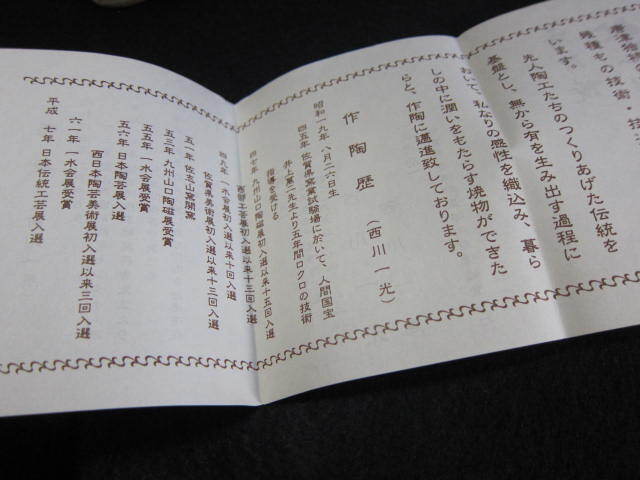 唐津焼
幾種もの技術、技
います。
先人陶工たちのつくりあげた伝統を
基盤とし、無から有を生み出す過程に
おいて、私なりの感性を織込み、暮ら
しの中に潤いをもたらす焼物ができた
らと、作陶に邁進致しております。
作陶歴（西川一光）
昭和一九年 八月二六日生
四五年 佐賀県窯業試験場に於いて、人間国宝
井上萬二先生より五年間ロクロの技術
指導を受ける
四七年 九州山口陶磁展初入選以来十五回入選
西部工芸展初入選以来十三回入選
佐賀県美術展初入選以来十三回入選
四九年 一水会展初入選以来十回入選
五一年 佐志山窯開窯
五三年 九州山口陶磁展受賞
五五年 一水会展受賞
五六年 日本陶芸展入選
西日本陶芸美術展初入選以来三回入選
六一年 一水会展受賞
平成 七年 日本伝統工芸展入選